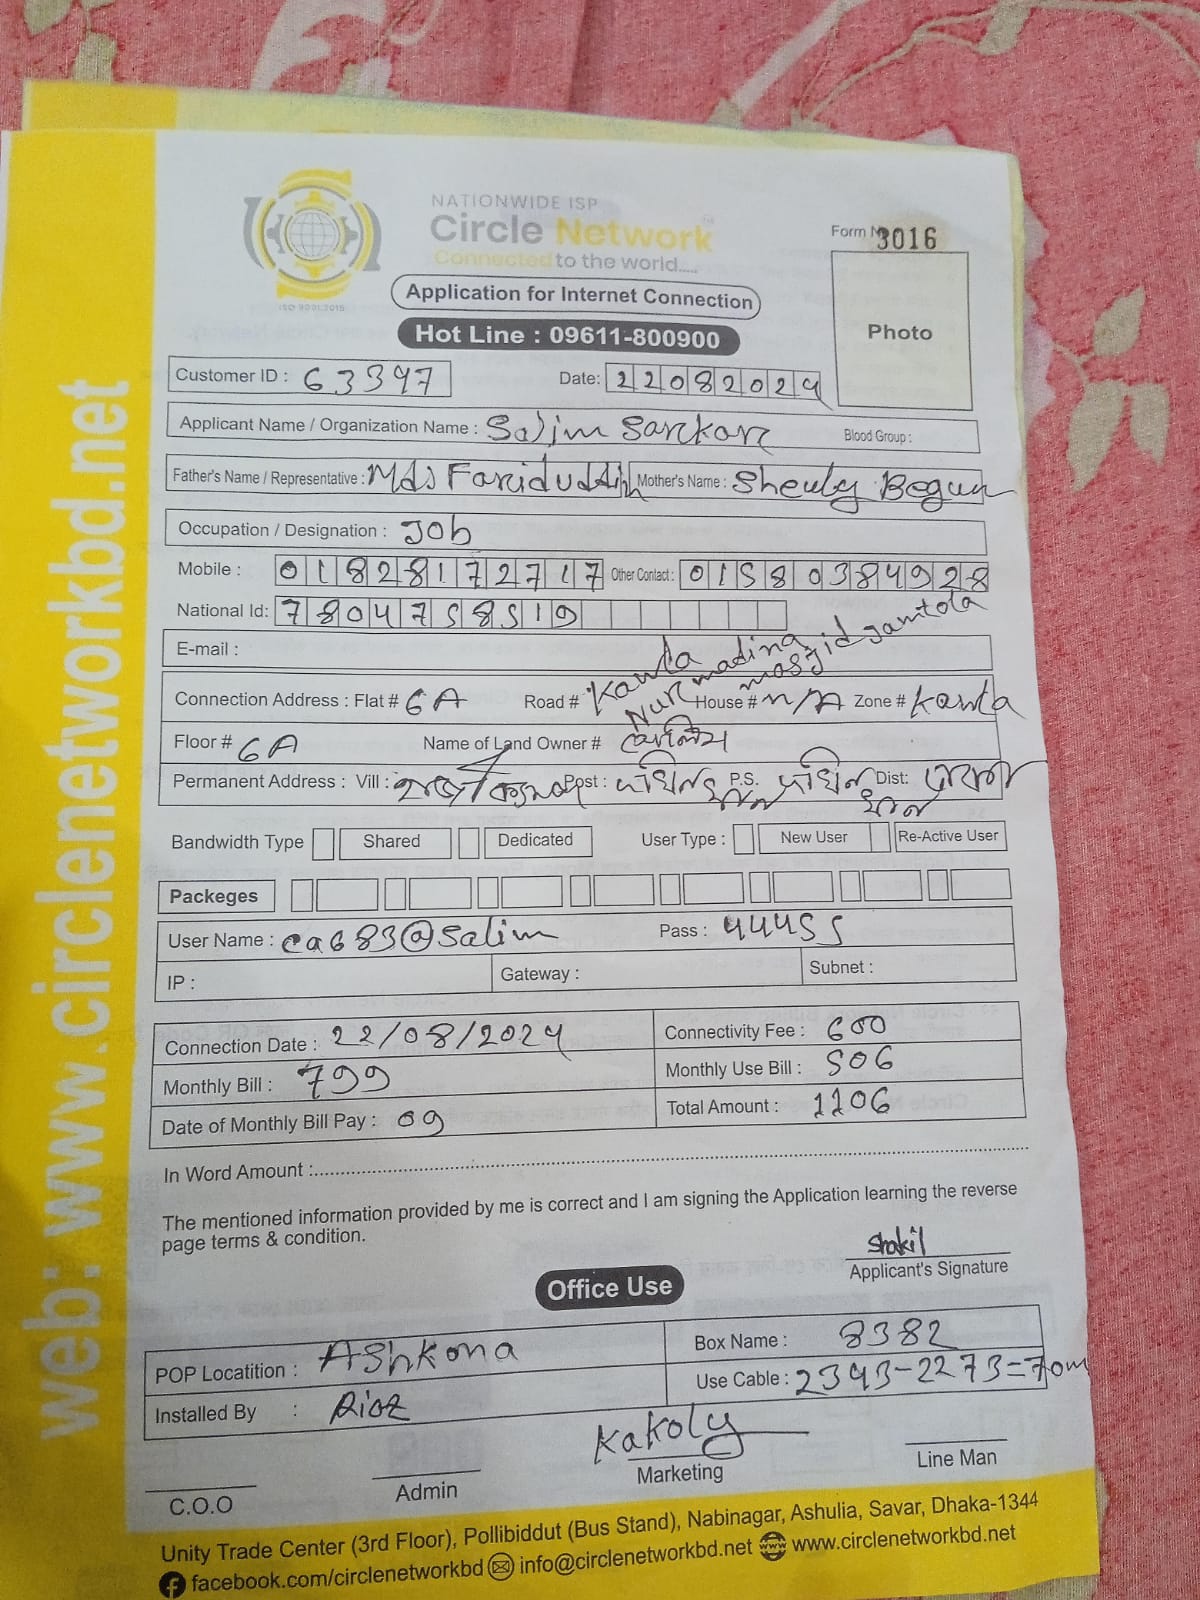 NATIONWIDE ISP
Circle Network
Connected to the world.....
ISO 9001:2015
Form N 3016
Application for Internet Connection
Photo
Hot Line : 09611-800900
Customer ID : 63397 Date: 22082024
Applicant Name / Organization Name : Salim Sarkar Blood Group :
Father's Name / Representative : Mds Fariduddin Mother's Name : Sheuly Begum
Occupation / Designation : Job
Mobile : 01828172717 Other Contact : 01580384928
National Id: 7804758519
E-mail :
Connection Address : Flat # 6A Road # Kawla Nur madina masjid Jamtola House # N/A Zone # Kawla
Floor # 6A Name of Land Owner #
Permanent Address : Vill : Post : P.S. Dist:
Bandwidth Type Shared Dedicated User Type : New User Re-Active User
Packeges
User Name : ca683@salim Pass : 44455
IP : Gateway : Subnet :
Connection Date : 22/08/2024 Connectivity Fee : 600
Monthly Bill : 799 Monthly Use Bill : 506
Date of Monthly Bill Pay : 09 Total Amount : 1106
In Word Amount :
The mentioned information provided by me is correct and I am signing the Application learning the reverse
page terms & condition.
Shakil
Applicant's Signature
Office Use
POP Locatition : Ashkona Box Name : 8382
Installed By : Use Cable : 2343-2273=70m
Kakoly
C.O.O Admin Marketing Line Man
Unity Trade Center (3rd Floor), Pollibiddut (Bus Stand), Nabinagar, Ashulia, Savar, Dhaka-1344
facebook.com/circlenetworkbd info@circlenetworkbd.net www.circlenetworkbd.net
web: www.circlenetworkbd.net